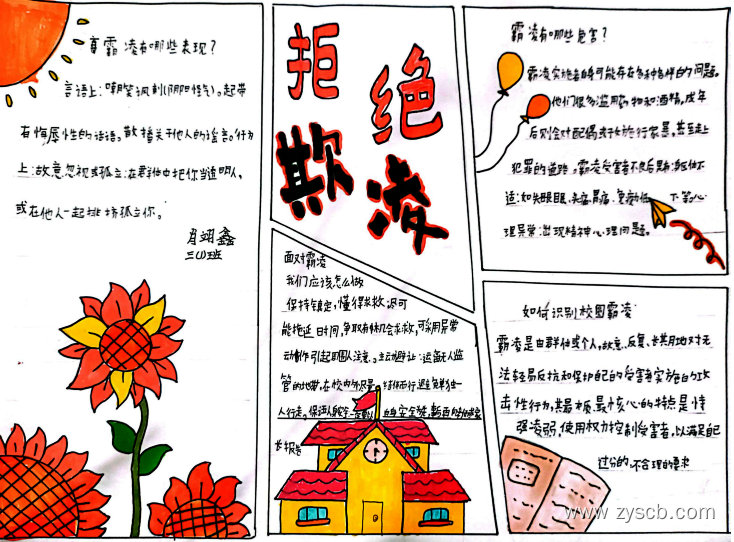 霸凌有哪些表现?
言语上:嘲笑讽刺(阴阳怪气)。起带
有侮辱性的话语。散播关于他人的谣言。行为
上:故意忽视或孤立:在群体中把你当透明人,
或在他人一起排挤孤立你。
三(1)班
拒绝
欺凌
面对霸凌
我们应该怎么做
保持镇定,懂得求救,尽可
能拖延时间,争取有机会求救,可采用异常
动作引起周围人注意。主动避让:远离无人监
管的地带,在校内外尽量结伴而行避免单独一
人行走。
霸凌有哪些危害?
霸凌实施者自身可能存在各种各样的问题。
他们很多滥用药物和酒精,成年
后则会对配偶子女施行家暴,甚至走上
犯罪的道路,霸凌受害者不良后果:躯体不
适:如失眠、头痛、胃痛、心
理异常:出现精神心理问题。
如何识别校园霸凌
霸凌是由群体或个人,故意、反复、长期地对无
法轻易反抗和保护自己的受害者实施的攻
击性行为,其最本质最核心的特点是恃
强凌弱,使用权力控制受害者,以满足自己
过分的,不合理的要求
www.zyscb.com